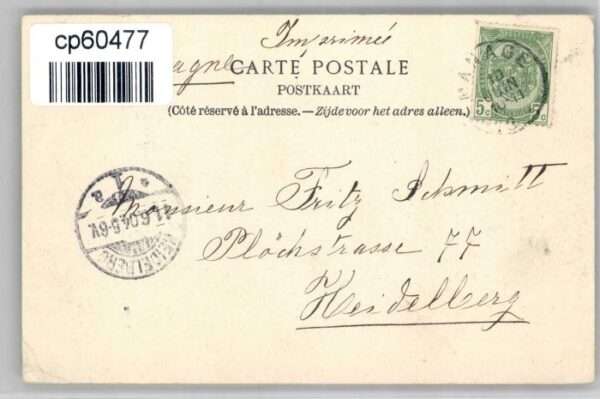 cp60477
Imprimé
CARTE POSTALE
POSTKAART
(Côté réservé à l'adresse. — Zijde voor het adres alleen.)
MANAGE
10
JUIN
5c 5c
HEIDELBERG
11.6.04.5-6V.
Monsieur Fritz Schmitt
Plöckstrasse 77
Heidelberg